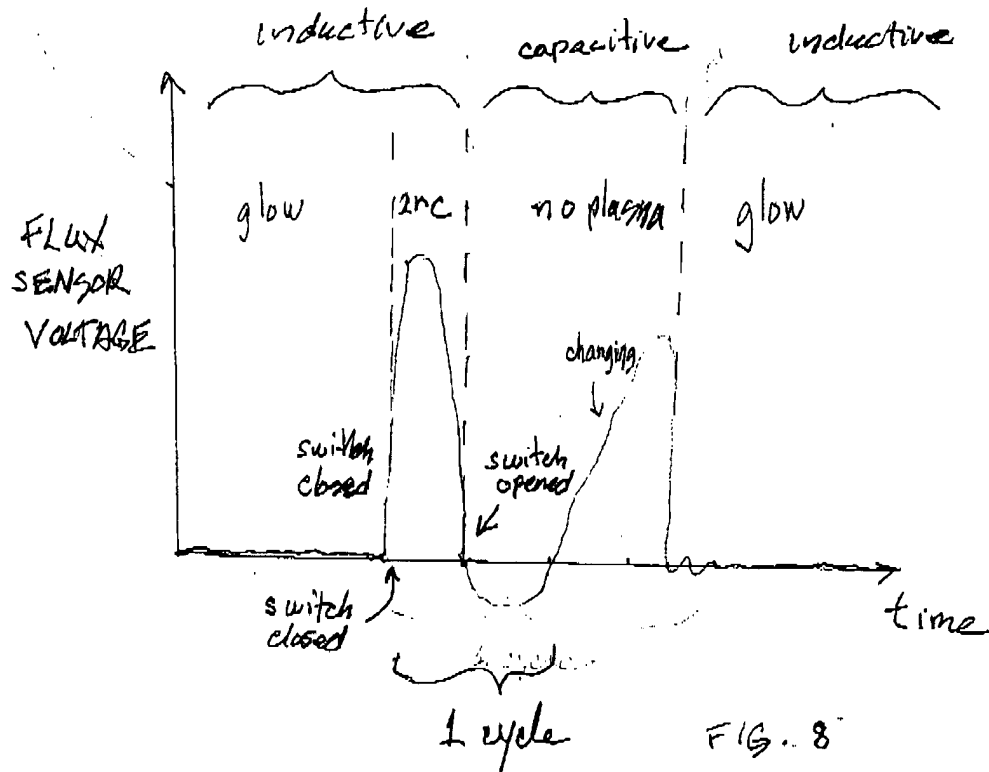 inductive
capacitive
inductive
glow
arc
no plasma
glow
FLUX
SENSOR
VOLTAGE
changing
switch
closed
switch
opened
switch
closed
time
1 cycle
FIG. 8